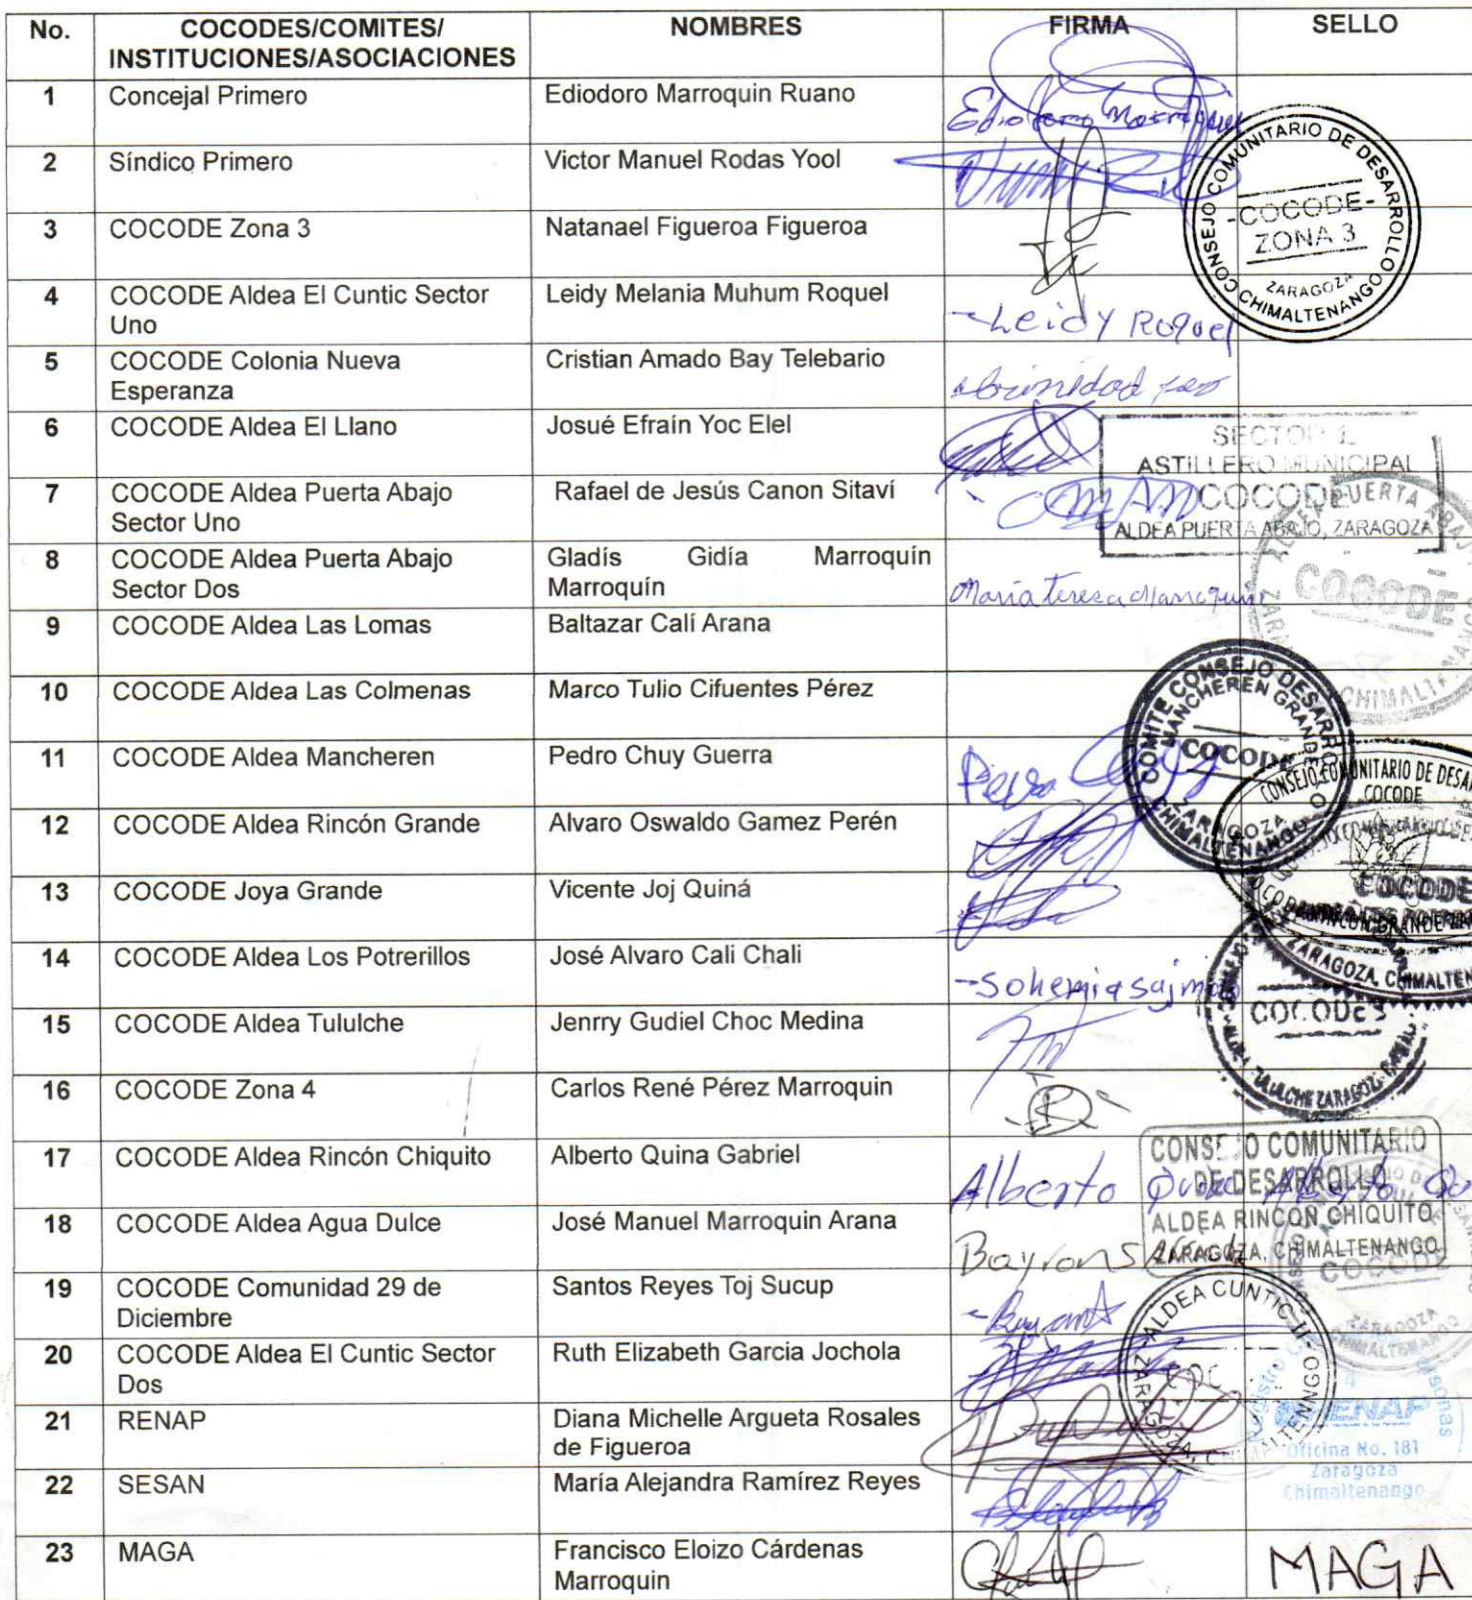 No. COCODES/COMITES/ NOMBRES FIRMA SELLO
INSTITUCIONES/ASOCIACIONES
1 Concejal Primero Ediodoro Marroquin Ruano
2 Síndico Primero Victor Manuel Rodas Yool
CONSEJO COMUNITARIO DE DESARROLLO
-COCODE-
ZONA 3
ZARAGOZA
CHIMALTENANGO
3 COCODE Zona 3 Natanael Figueroa Figueroa
4 COCODE Aldea El Cuntic Sector Leidy Melania Muhum Roquel
Uno
-Leidy Roquel
5 COCODE Colonia Nueva Cristian Amado Bay Telebario
Esperanza
6 COCODE Aldea El Llano Josué Efraín Yoc Elel
SECTOR 1
ASTILLERO MUNICIPAL
COCODE
ALDEA PUERTA ABAJO, ZARAGOZA
7 COCODE Aldea Puerta Abajo Rafael de Jesús Canon Sitaví
Sector Uno
8 COCODE Aldea Puerta Abajo Gladís Gidía Marroquín
Sector Dos Marroquín
Maria Teresa Marroquin
COCODE
9 COCODE Aldea Las Lomas Baltazar Calí Arana
10 COCODE Aldea Las Colmenas Marco Tulio Cifuentes Pérez
COMITE CONSEJO DESARROLLO
MANCHEREN GRANDE
COCODE
ZARAGOZA
CHIMALTENANGO
11 COCODE Aldea Mancheren Pedro Chuy Guerra
Pedro Chuy
CONSEJO COMUNITARIO DE DESAR
COCODE
12 COCODE Aldea Rincón Grande Alvaro Oswaldo Gamez Perén
13 COCODE Joya Grande Vicente Joj Quiná
COCODE
RINCON GRANDE
ZARAGOZA, CHIMALTEN
14 COCODE Aldea Los Potrerillos José Alvaro Cali Chali
15 COCODE Aldea Tululche Jenrry Gudiel Choc Medina
COCODES
TULULCHE ZARAGOZA
16 COCODE Zona 4 Carlos René Pérez Marroquin
17 COCODE Aldea Rincón Chiquito Alberto Quina Gabriel
Alberto
CONSEJO COMUNITARIO
DE DESARROLLO
ALDEA RINCON CHIQUITO
ZARAGOZA, CHIMALTENANGO
18 COCODE Aldea Agua Dulce José Manuel Marroquin Arana
Bayron
COCODE
ZARAGOZA
CHIMALTENANGO
19 COCODE Comunidad 29 de Santos Reyes Toj Sucup
Diciembre
ALDEA CUNTIC II
ZARAGOZA, CHIMALTENNGO
20 COCODE Aldea El Cuntic Sector Ruth Elizabeth Garcia Jochola
Dos
21 RENAP Diana Michelle Argueta Rosales
de Figueroa
RENAP
Oficina No. 181
Zaragoza
Chimaltenango
22 SESAN María Alejandra Ramírez Reyes
23 MAGA Francisco Eloizo Cárdenas MAGA
Marroquin